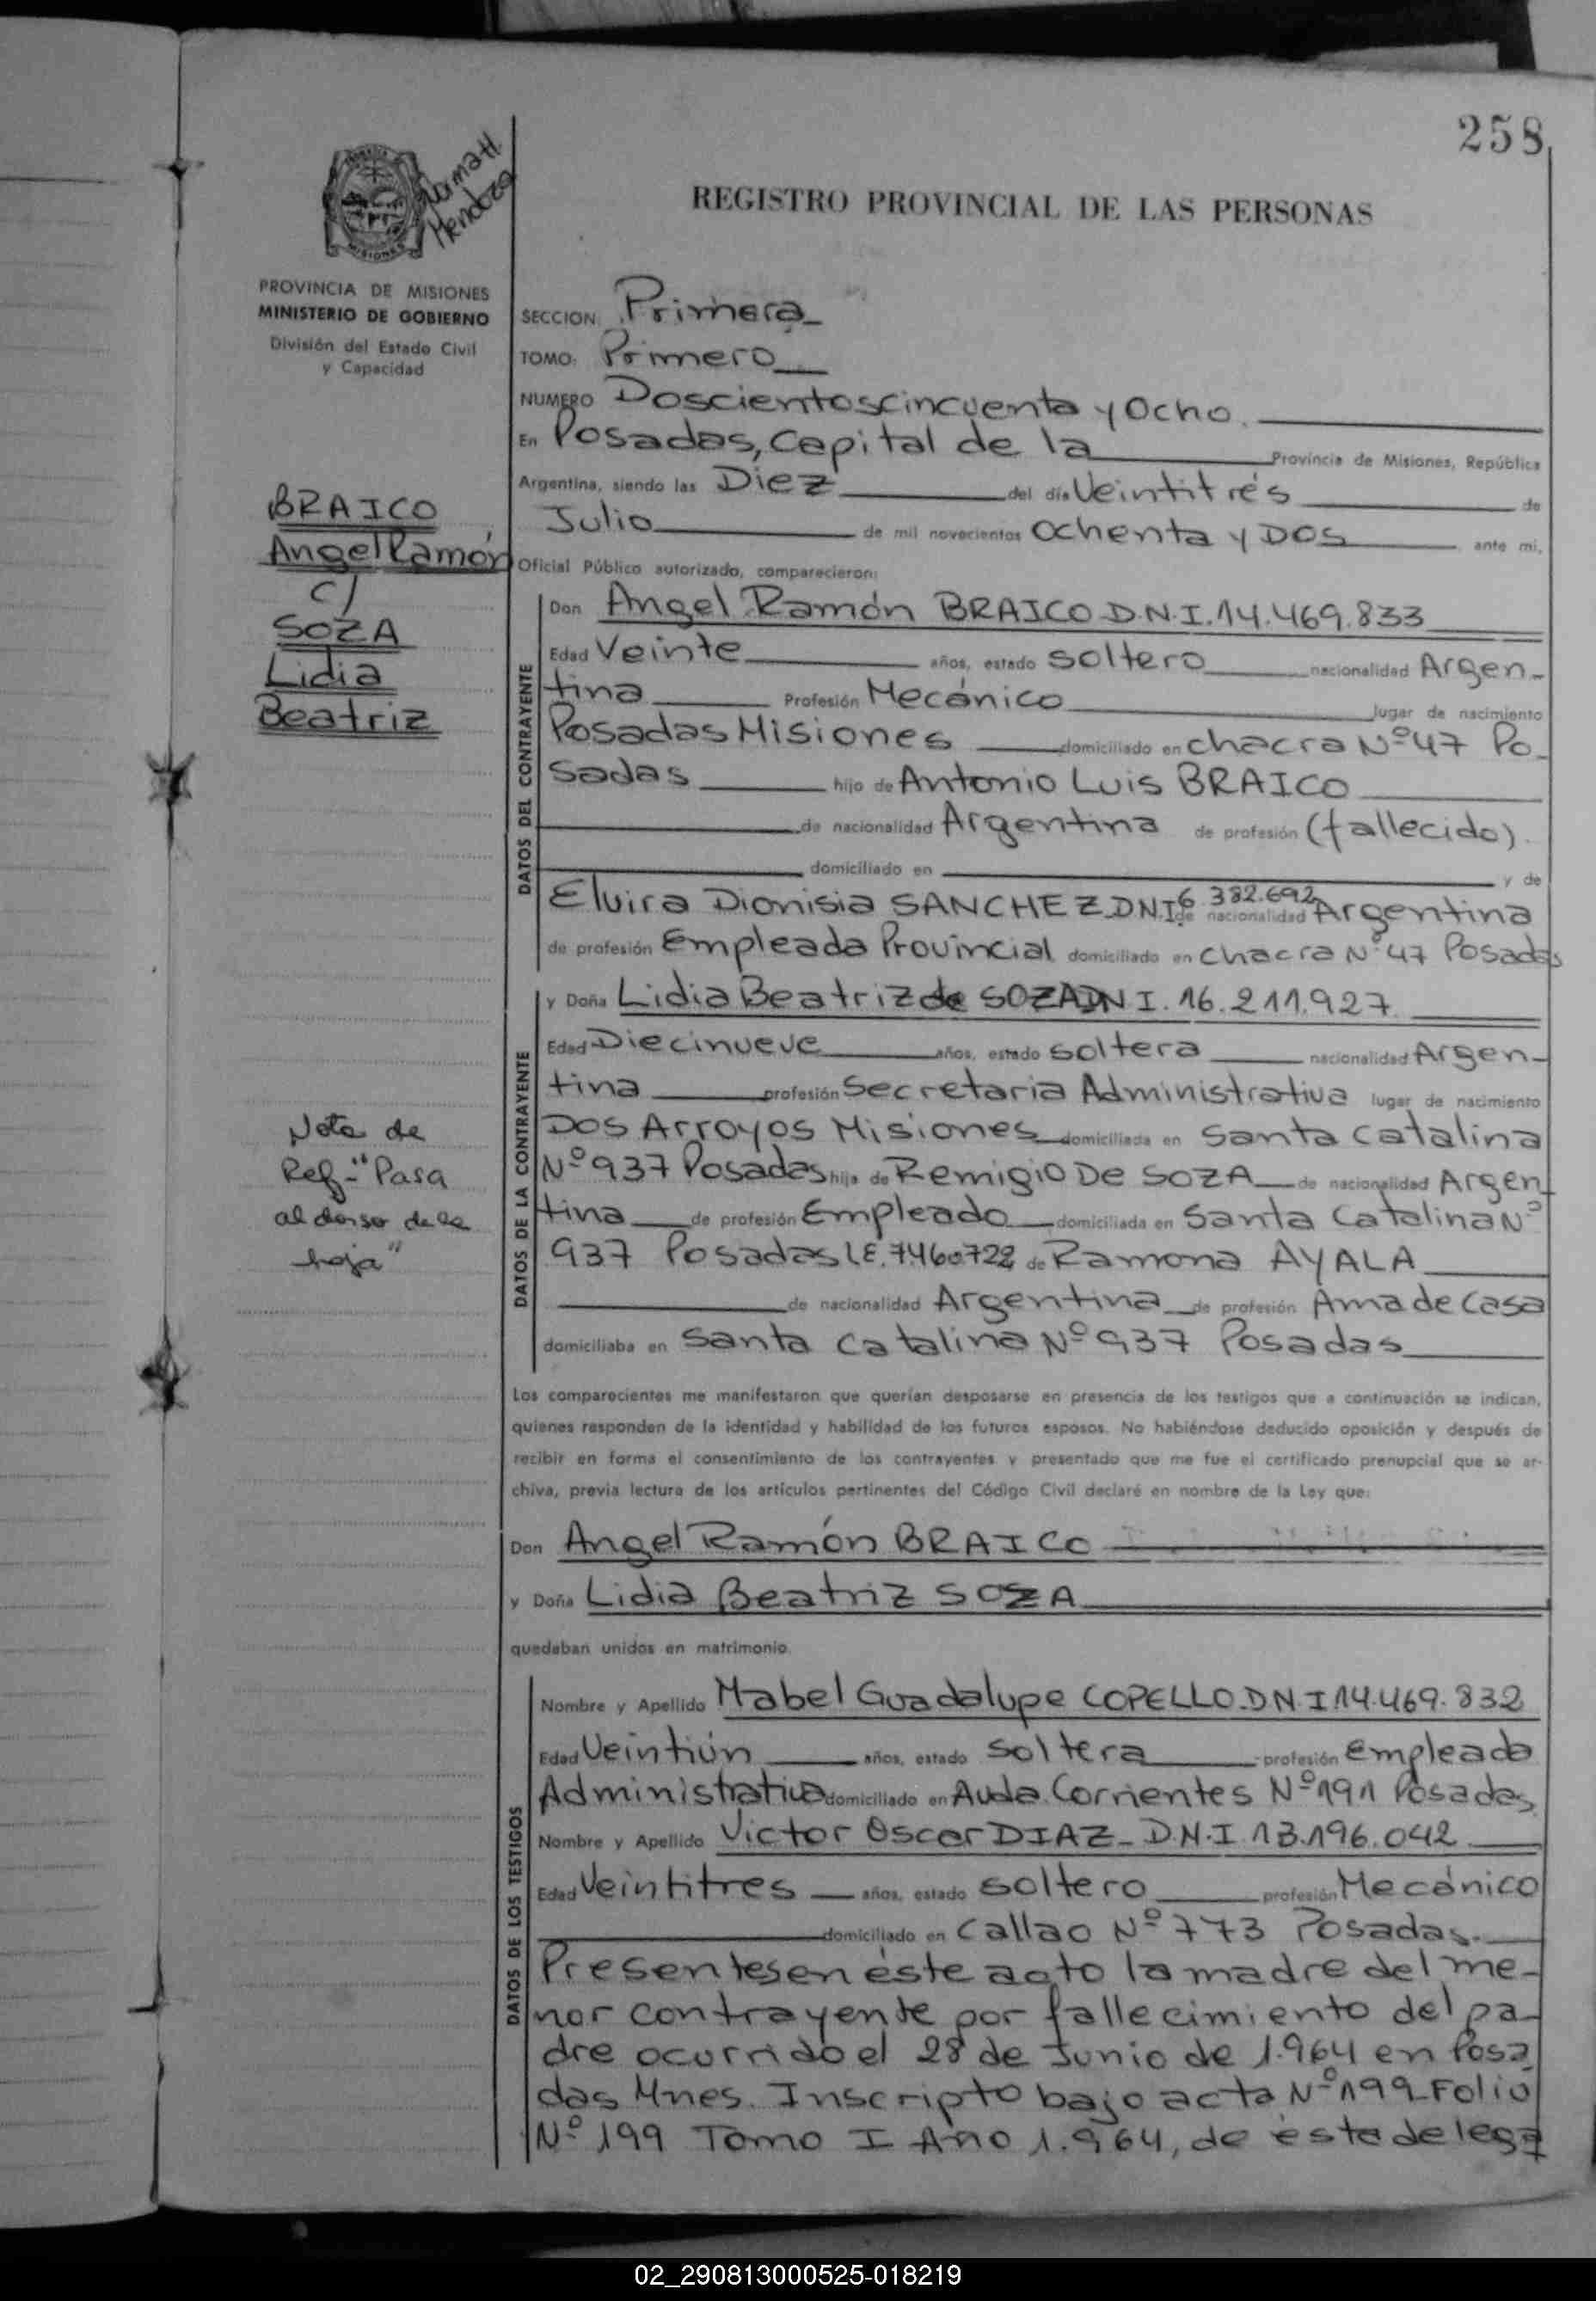 258
REGISTRO PROVINCIAL DE LAS PERSONAS
MISIONES
Mendoza
PROVINCIA DE MISIONES
MINISTERIO DE GOBIERNO
División del Estado Civil
y Capacidad
SECCION: Primera
TOMO: Primero
NUMERO Doscientoscincuenta y Ocho.
En Posadas, Capital de la Provincia de Misiones, República
Argentina, siendo las Diez del día Veintitrés de
Julio de mil novecientos Ochenta y DOS ante mi,
Oficial Público autorizado, comparecieron:
BRAICO
Angel Ramón
c/
SOZA
Lidia
Beatriz
DATOS DEL CONTRAYENTE
Don Angel Ramón BRAICO D.N.I. 14.469.833
Edad Veinte años, estado soltero nacionalidad Argen-
tina Profesión Mecánico lugar de nacimiento
Posadas Misiones domiciliado en chacra Nº 47 Po-
sadas hijo de Antonio Luis BRAICO
de nacionalidad Argentina de profesión (fallecido).
domiciliado en y de
Elvira Dionisia SANCHEZ D.N.I. 6.382.692 de nacionalidad Argentina
de profesión Empleada Provincial domiciliado en chacra Nº 47 Posadas
DATOS DE LA CONTRAYENTE
y Doña Lidia Beatriz de SOZA DNI. 16.211.927
Edad Diecinueve años, estado soltera nacionalidad Argen-
tina profesión Secretaria Administrativa lugar de nacimiento
DOS Arroyos Misiones domiciliada en Santa Catalina
Nº 937 Posadas hija de Remigio De SOZA de nacionalidad Argen-
tina de profesión Empleado domiciliada en Santa Catalina Nº
937 Posadas L.E. 7.460.722 de Ramona AYALA
de nacionalidad Argentina de profesión Ama de Casa
domiciliaba en Santa Catalina Nº 937 Posadas
Nota de
Ref-"Pasa
al dorso de la
hoja"
Los comparecientes me manifestaron que querían desposarse en presencia de los testigos que a continuación se indican,
quienes responden de la identidad y habilidad de los futuros esposos. No habiéndose deducido oposición y después de
recibir en forma el consentimiento de los contrayentes y presentado que me fue el certificado prenupcial que se ar-
chiva, previa lectura de los artículos pertinentes del Código Civil declaré en nombre de la Ley que:
Don Angel Ramón BRAICO
y Doña Lidia Beatriz SOZA
quedaban unidos en matrimonio.
DATOS DE LOS TESTIGOS
Nombre y Apellido Mabel Guadalupe COPELLO. DN.I 14.469.832
Edad Veintiún años, estado soltera profesión Empleada
Administrativa domiciliado en Avda. Corrientes Nº 191 Posadas
Nombre y Apellido Victor Oscar DIAZ - D.N.I. 13.196.042
Edad Veintitres años, estado soltero profesión Mecánico
domiciliado en Callao Nº 773 Posadas.
Presentes en éste acto la madre del me-
nor contrayente por fallecimiento del pa-
dre ocurrido el 28 de Junio de 1.964 en Posa
das Mnes. Inscripto bajo acta Nº 199 Folio
Nº 199 Tomo I Año 1.964, de esta delega
02_290813000525-018219